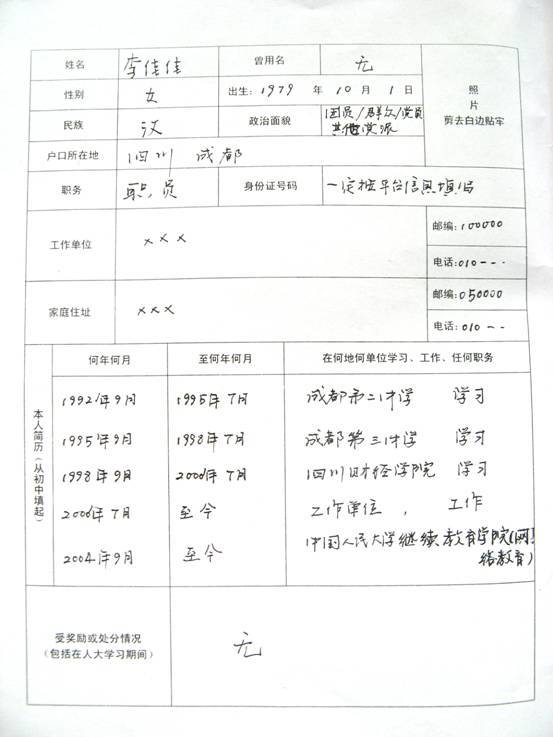 姓名 李佳佳 曾用名 无
性别 女 出生:1979 年 10 月 1 日
照
片
剪去白边贴牢
民族 汉 政治面貌 团员/群众/党员
其他党派
户口所在地 四川 成都
职务 职员 身份证号码 一定按平台信息填写
工作单位 ××× 邮编:100000
电话:010---
家庭住址 ××× 邮编:050000
电话:010--
本人简历(从初中填起)
何年何月 至何年何月 在何地何单位学习、工作、任何职务
1992年9月 1995年7月 成都第二中学 学习
1995年9月 1998年7月 成都第三中学 学习
1998年9月 2000年7月 四川财经学院 学习
2000年7月 至今 工作单位, 工作
2004年9月 至今 中国人民大学继续教育学院(网
络教育)
受奖励或处分情况 无
(包括在人大学习期间)